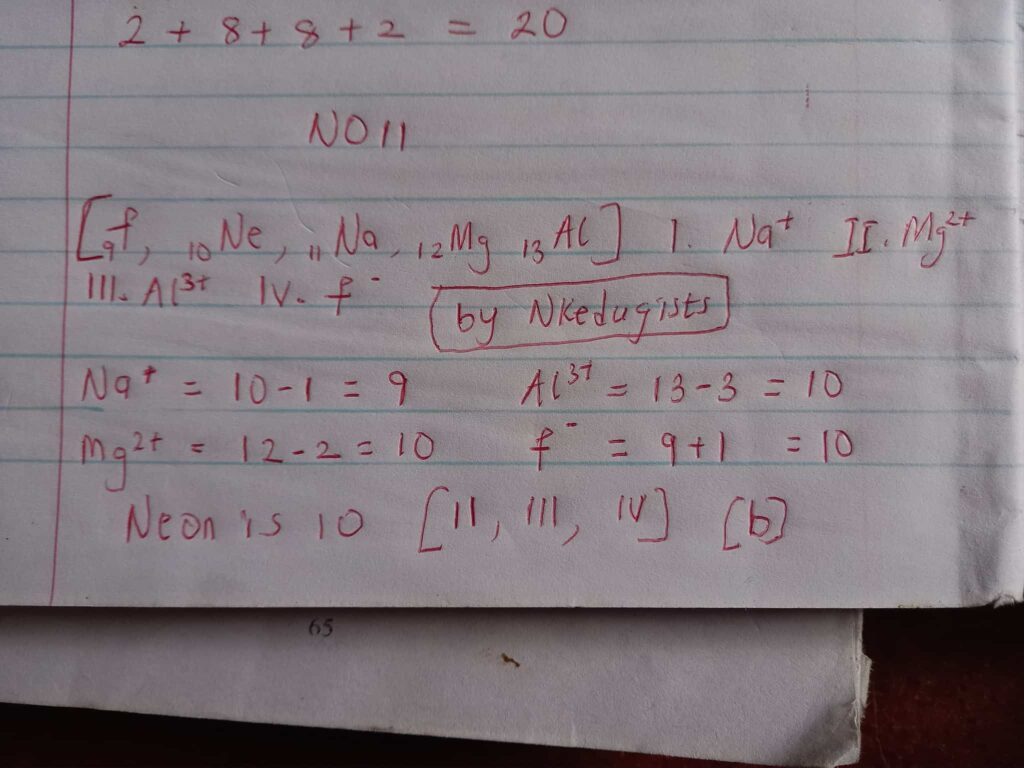 2 + 8 + 8 + 2 = 20
NO 11
[₉f, ₁₀Ne, ₁₁Na, ₁₂Mg ₁₃Al] I. Na⁺ II. Mg²⁺
III. Al³⁺ IV. f⁻ by NKedugists
Na⁺ = 10 - 1 = 9 Al³⁺ = 13 - 3 = 10
Mg²⁺ = 12 - 2 = 10 f⁻ = 9 + 1 = 10
Neon is 10 [II, III, IV] [b]
65